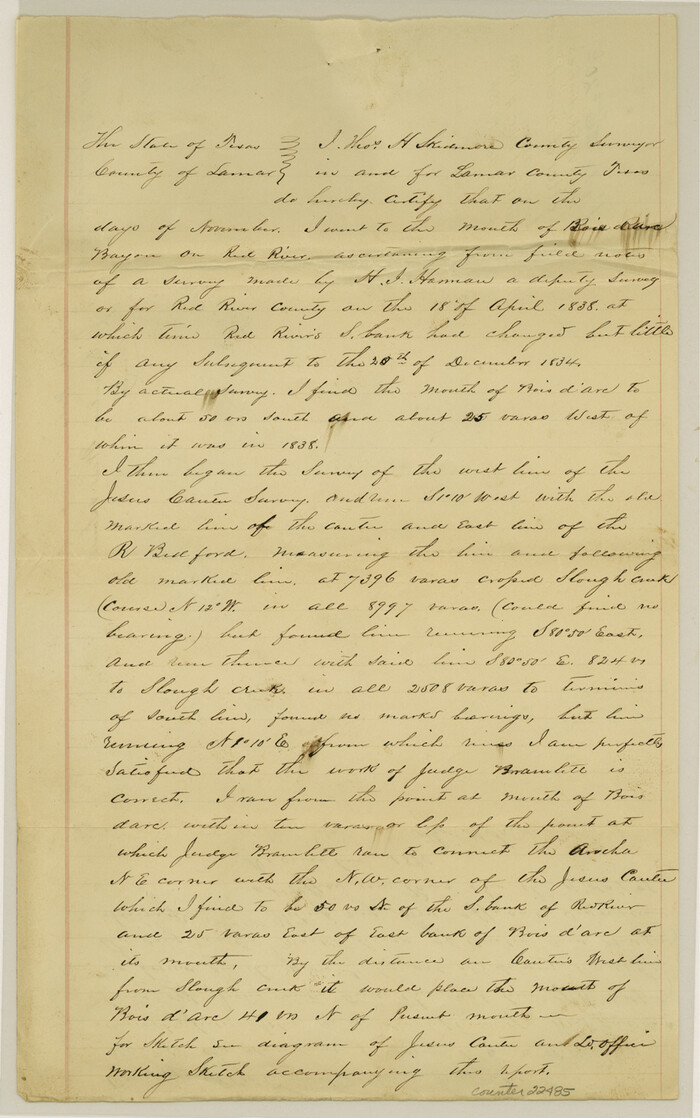 The State of Texas } I. Thos. H Skidmore County Surveyor
County of Lamar } in and for Lamar County Texas
do hereby certify that on the
days of November. I went to the mouth of Bois d'arc
Bayou on Red River. ascertaining from field notes
of a survey made by H. J. Harman a deputy survey
or for Red River County on the 18' of April 1838. at
which time Red River's S. bank had changed but little
if any subsequent to the 20th of December 1834.
By actual survey. I find the mouth of Bois d'arc to
be about 50 vrs south and about 25 varas West of
when it was in 1838.
I then began the survey of the west line of the
Jesus Canter Survey. and run S1°10' West with the old
marked line of the canter and East line of the
R Bedford. measuring the line and following
old marked line. at 7396 varas crossed Slough creek
(Course N 12° W. in all 8997 varas. (Could find no
bearing.) but found line running S80°50' East.
and run thence with said line S80°50' E. 824 vs
to Slough creek. in all 2508 varas to terminis
of south line, found no marks bearings, but line
running N 1°10' E from which I am perfectly
satisfied that the work of Judge Bramlett is
correct. I ran from the point at mouth of Bois
darc. within ten varas or less of the point at
which Judge Bramlett ran to connect the Arocha
N E corner with the N.W. corner of the Jesus Canter
which I find to be 50 vs N. of the S. bank of Red River
and 25 varas East of East bank of Bois d'arc at
its mouth, By the distance on Canter's West line
from Slough creek it would place the mouth of
Bois d'arc 40 vrs N of Present mouth
for Sketch see diagram of Jesus Canter and Ld. office
working sketch accompanying this report.
counter 22485